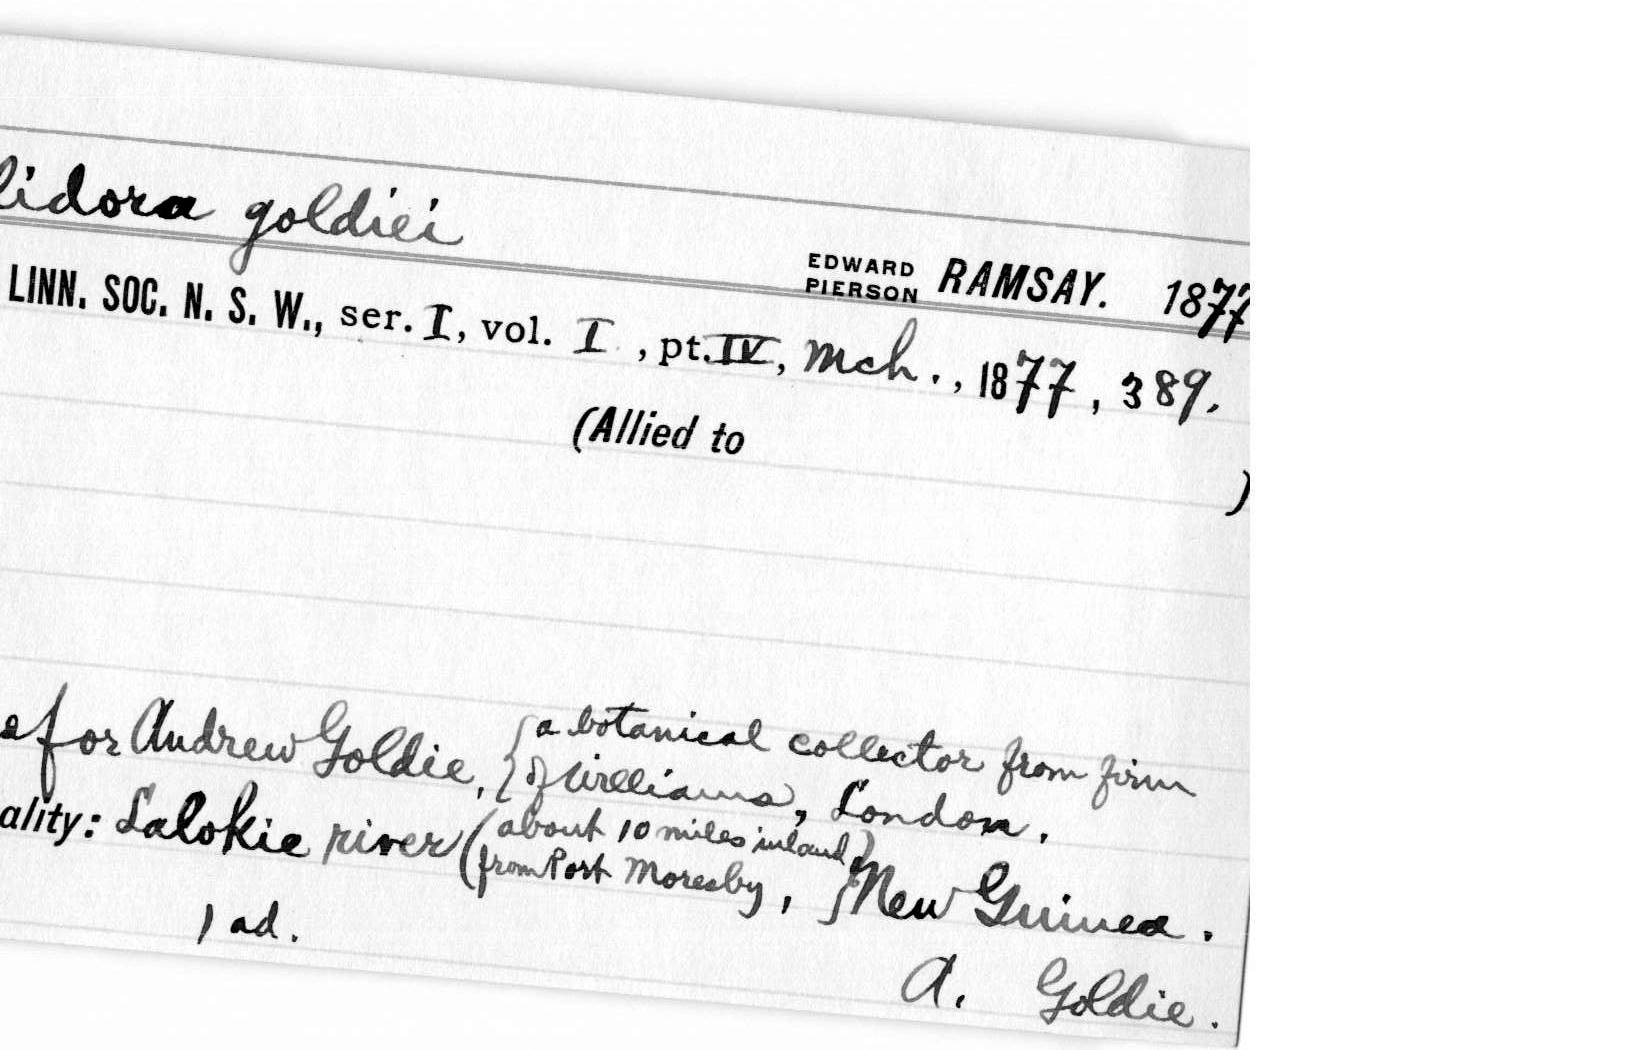 lidora goldiei
EDWARD PIERSON RAMSAY. 1877
LINN. SOC. N. S. W., ser. I, vol. I, pt. IV, Mch., 1877, 389.
(Allied to
)
e for Andrew Goldie, {a botanical collector from firm
of Williams, London.
ality: Lalokie river (about 10 miles inland
from Port Moresby,) New Guinea.
1 ad.
A. Goldie.